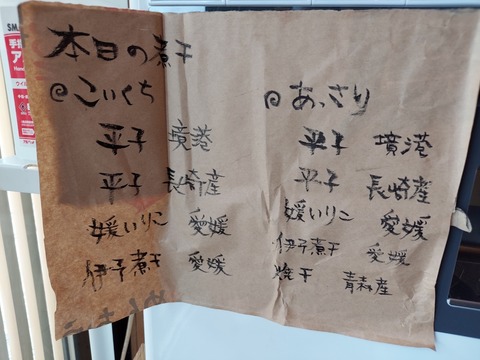 本日の煮干
@こいくち
平子 境港
平子 長崎産
媛いりこ 愛媛
伊予煮干 愛媛
@あっさり
平子 境港
平子 長崎産
媛いりこ 愛媛
伊予煮干 愛媛
焼干 青森産